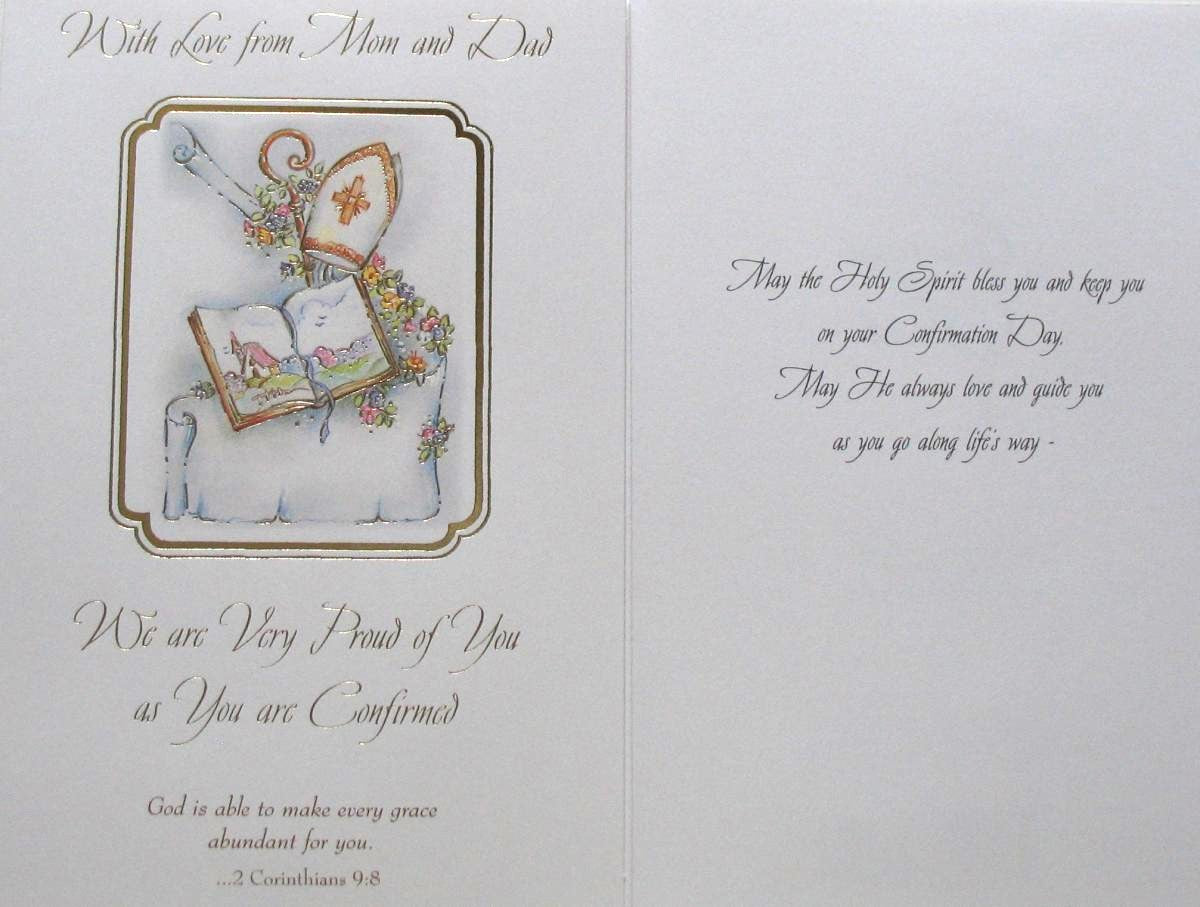 With Love from Mom and Dad
We are Very Proud of You
as You are Confirmed
God is able to make every grace
abundant for you.
...2 Corinthians 9:8
May the Holy Spirit bless you and keep you
on your Confirmation Day.
May He always love and guide you
as you go along life's way -